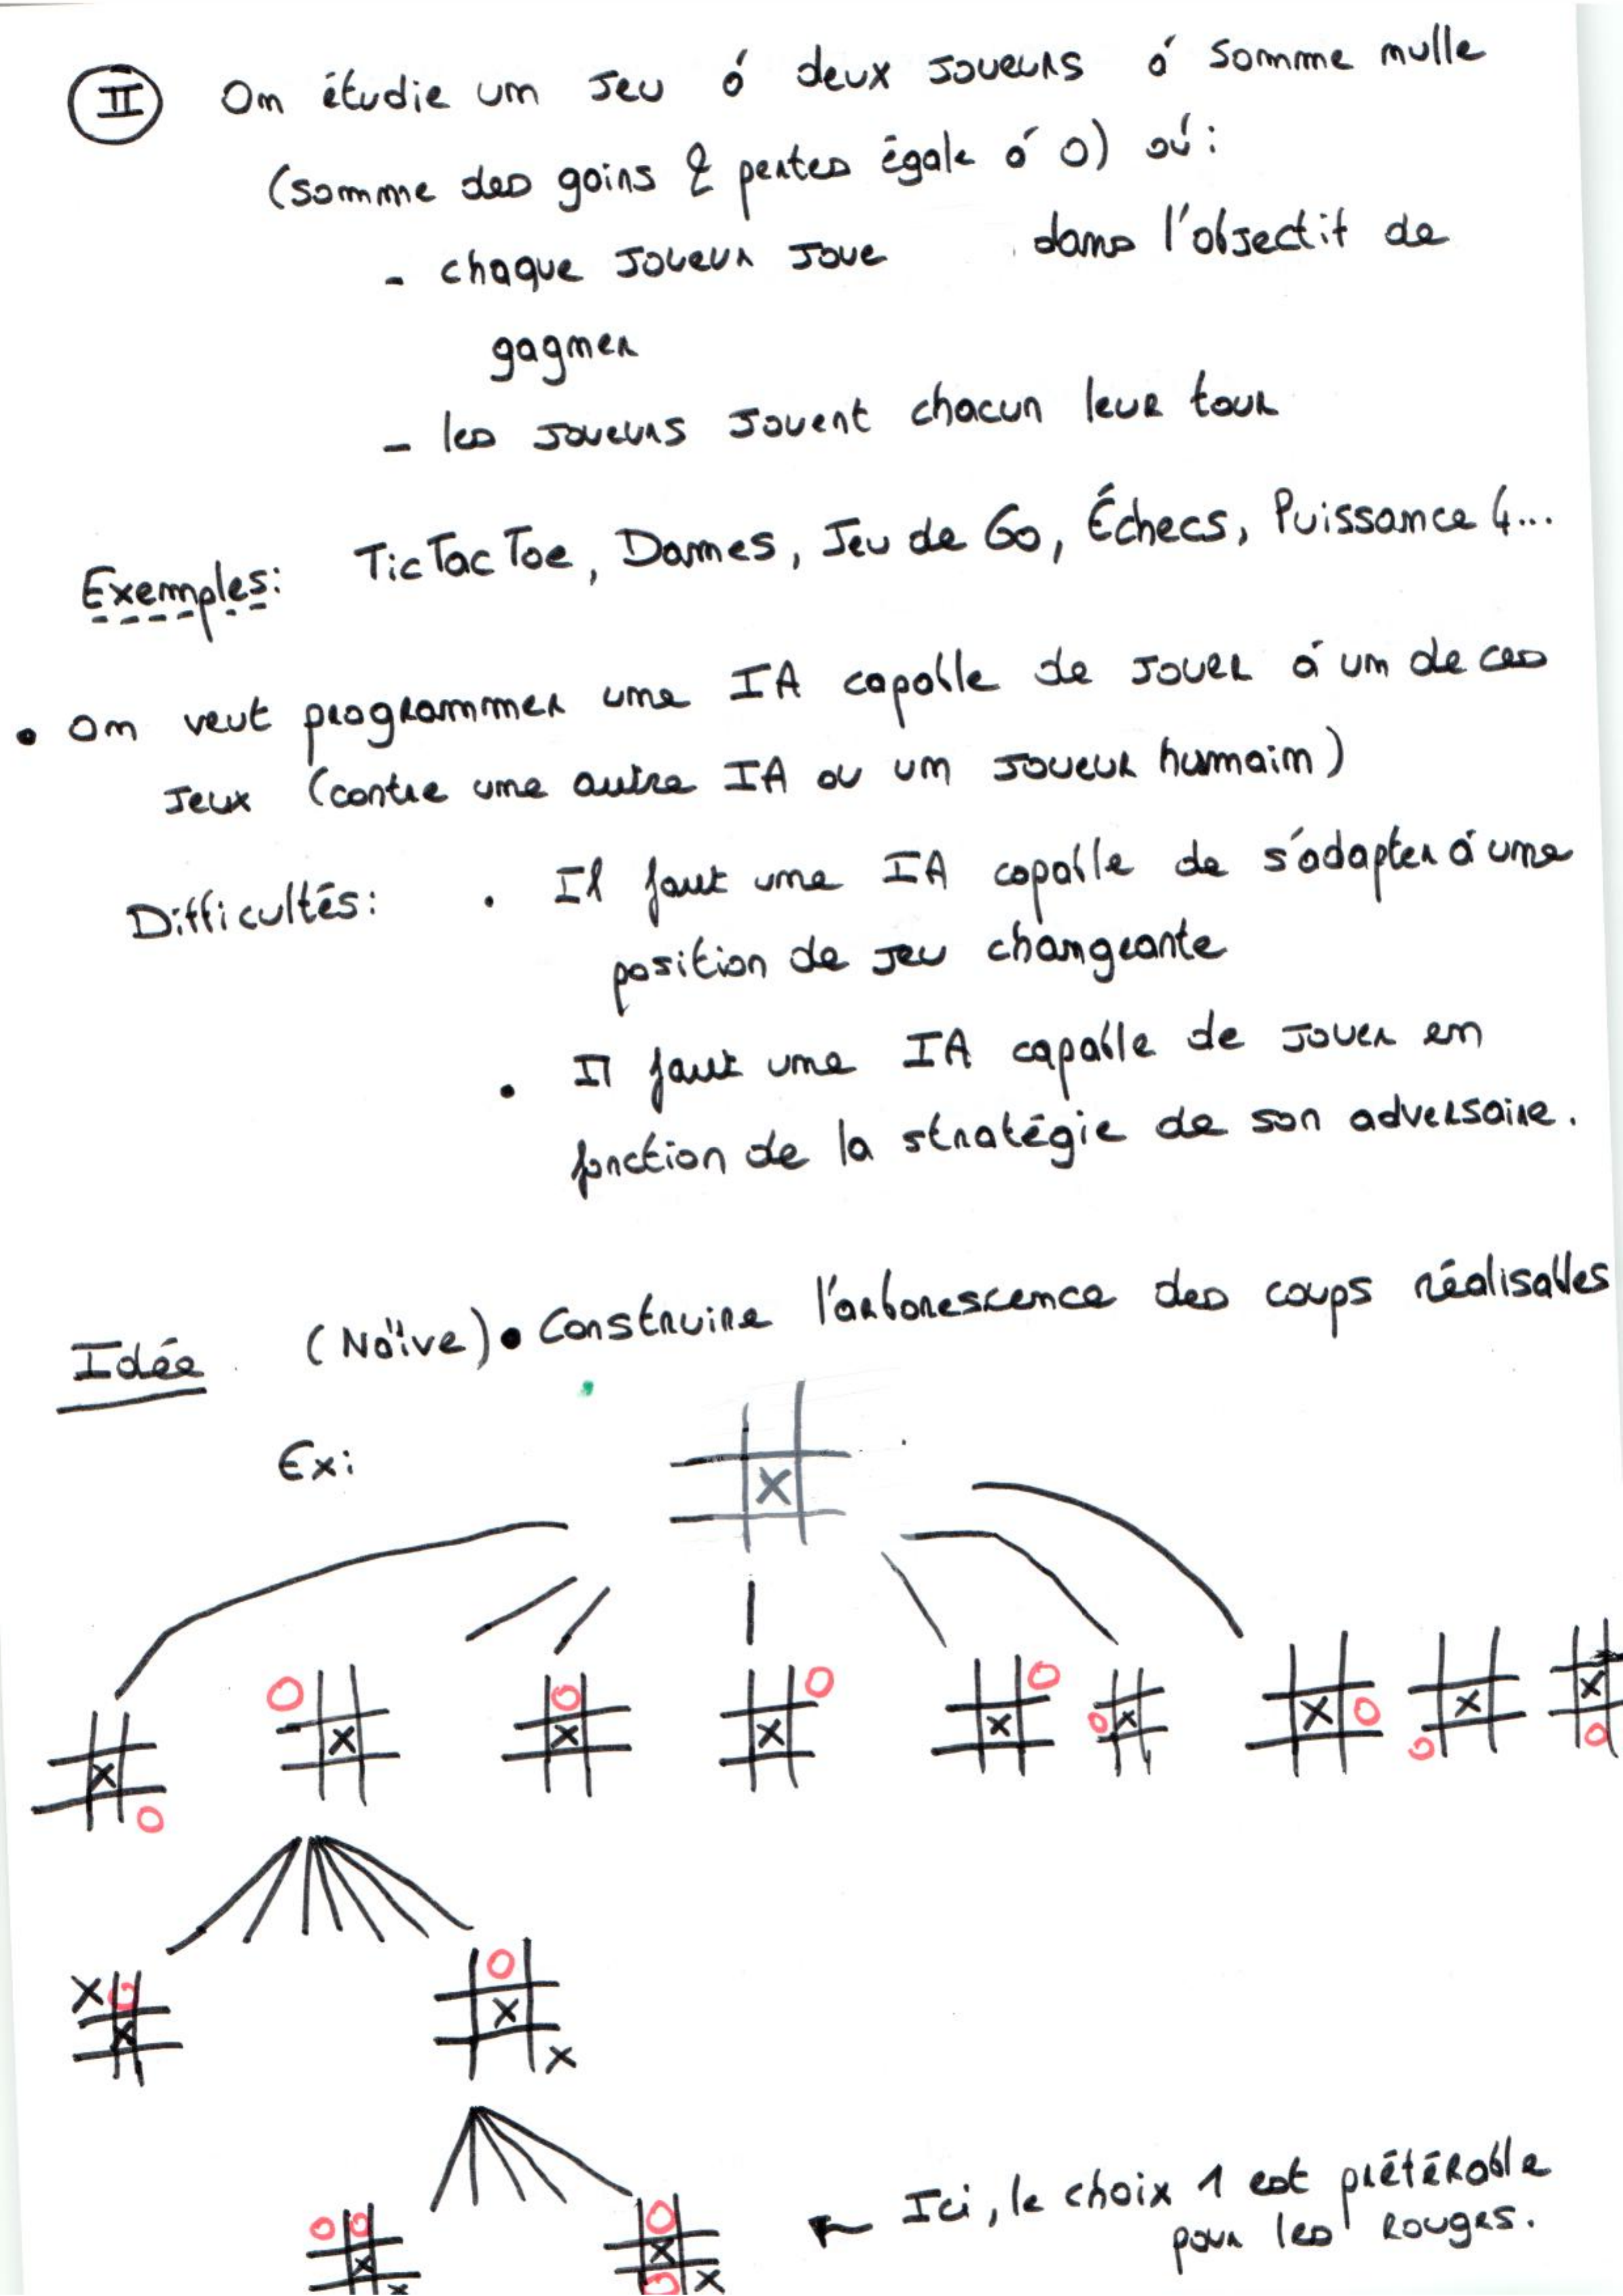 II On étudie un jeu à deux joueurs à somme nulle
(somme des gains & pertes égale à 0) où :
- chaque joueur joue dans l'objectif de
gagner
- les joueurs jouent chacun leur tour
Exemples: TicTacToe, Dames, Jeu de Go, Échecs, Puissance 4...
• On veut programmer une IA capable de jouer à un de ces
jeux (contre une autre IA ou un joueur humain)
Difficultés: • Il faut une IA capable de s'adapter à une
position de jeu changeante
• Il faut une IA capable de jouer en
fonction de la stratégie de son adversaire.
Idée (Naïve) • Construire l'arborescence des coups réalisables
Ex:
X
O X O X O X O X O X O X O X X
X O O O
X O O
X X
X
O O O
X X
X O X
← Ici, le choix 1 est préférable
pour les rouges.